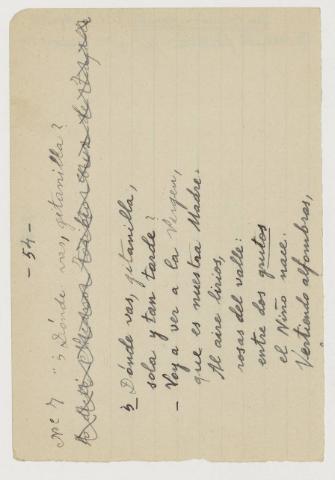 - 54 -
Nº 7 "¿Dónde vas, gitanilla?
¿Dónde vas, gitanilla,
sola y tan tarde?
- Voy a ver a la Virgen,
que es nuestra Madre.
Al aire lirios,
rosas del valle:
entre dos grutos
el Niño nace.
Vertiendo alfombras,